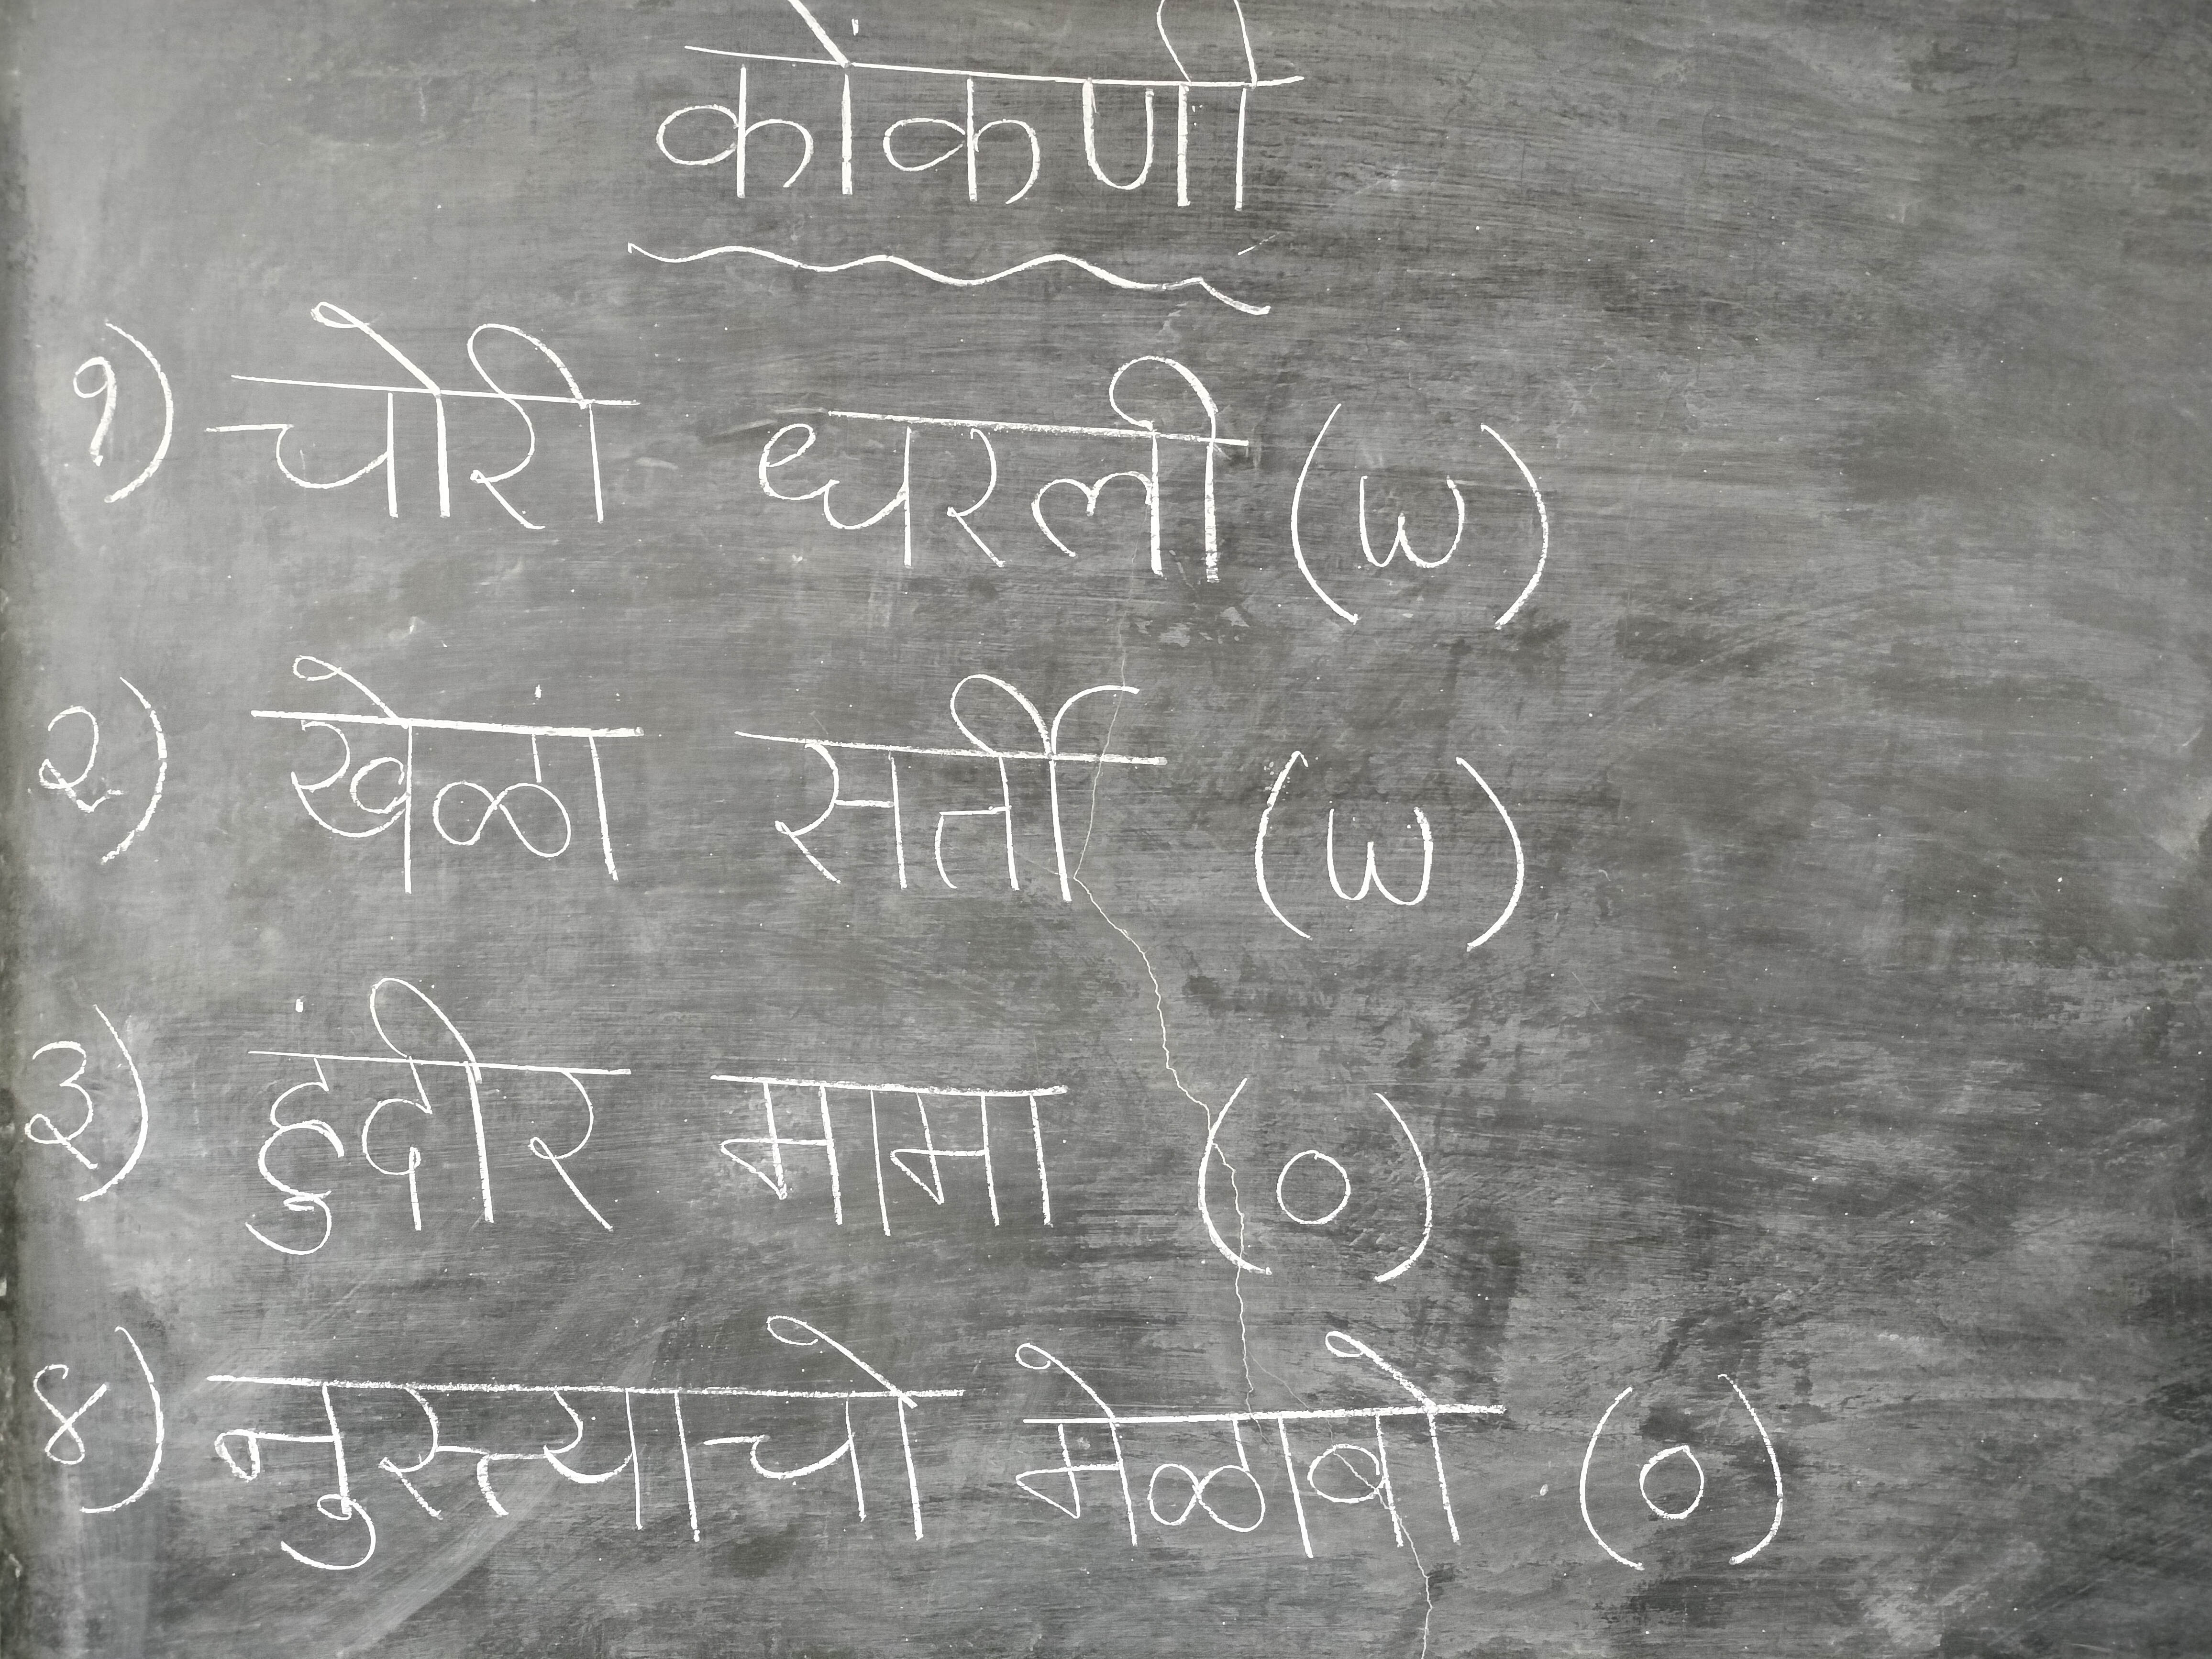 कोंकणी
१) चोरी धरली (W)
२) खेळां सर्ती (W)
३) हुंदीर मामा (O)
४) नुस्त्याचो मेळावो (O)